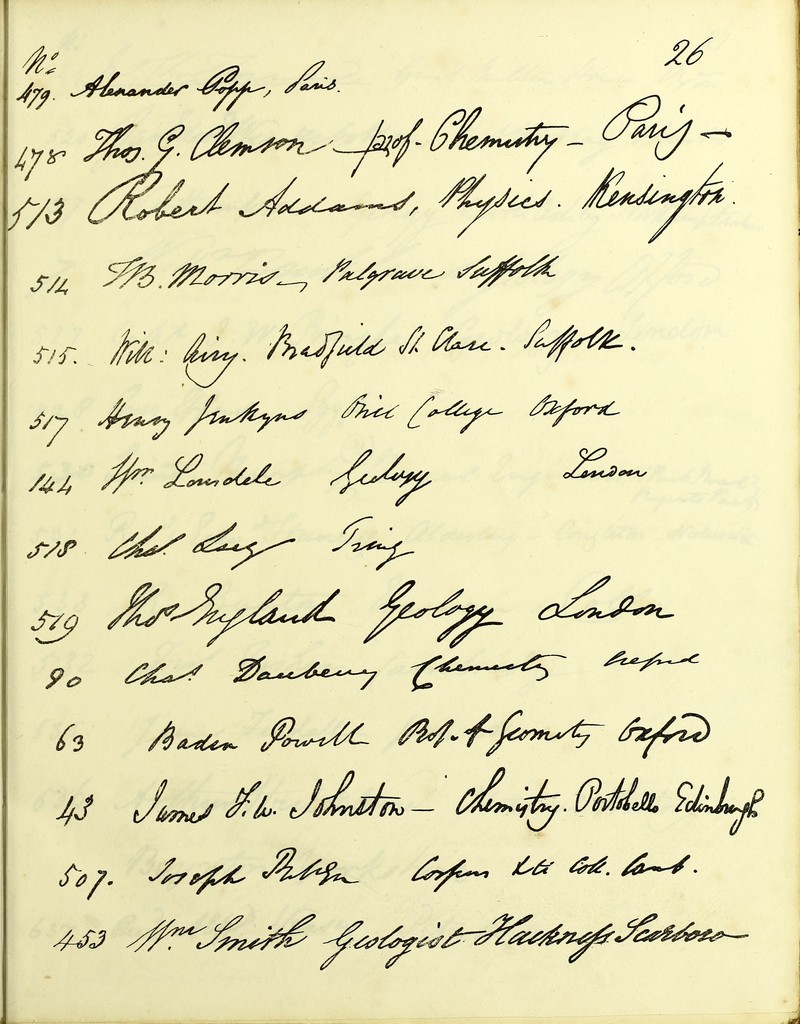 26
No
479. Alexander Popp, Paris.
478 Thos. G. Clemson – prof. Chemistry – Paris –
513 Robert Addams, Physics. Kensington.
514 Morris –, Palgrave Suffolk
515. Will: Airy. Bradfield St. Clare. Suffolk.
517 Henry Jenkyns Oriel College Oxford
144 Wm Lonsdale Geology London
518 Chas. Tring
519 Thos England Geology London
80 Chas. Daubeny Chemistry Oxford
63 Baden Powell Prof. of Geometry Oxford
43 James F. W. Johnston – Chemistry. Portobello Edinburgh
507. Joseph Corpus Xti Coll. Camb.
453 Wm. Smith Geologist Hackness Scarboro